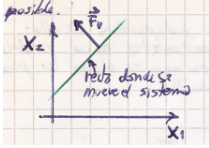 posible.
F₁
X₂
recta donde se
mueve el sistema
X₁